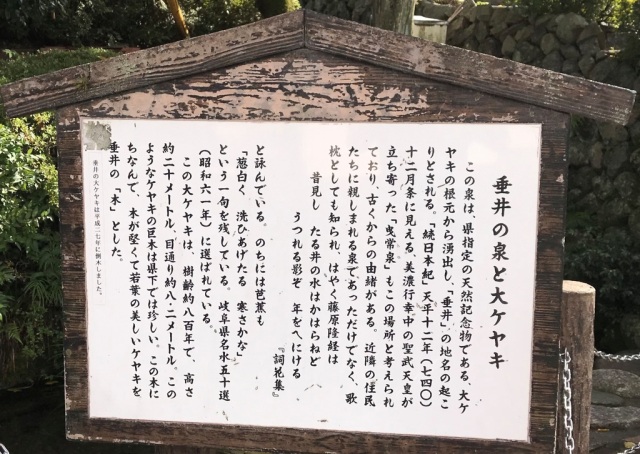 垂井の泉と大ケヤキ
この泉は、県指定の天然記念物である、大ケ
ヤキの根元から湧出し、「垂井」の地名の起こ
りとされる。「続日本紀」天平十二年(七四〇)
十二月条に見える、美濃行幸中の聖武天皇が
立ち寄った「曳常泉」もこの場所と考えられ
ており、古くからの由緒がある。近隣の住民
たちに親しまれる泉であっただけでなく、歌
枕としても知られ、はやく藤原隆経は
昔見し たる井の水はかはらねど
うつれる影ぞ 年をへにける
『詞花集』
と詠んでいる。のちには芭蕉も
「葱白く 洗ひあげたる 寒さかな」
という一句を残している。岐阜県名水五十選
(昭和六一年)に選ばれている。
この大ケヤキは、樹齢約八百年で、高さ
約二十メートル、目通り約八・二メートル。この
ようなケヤキの巨木は県下では珍しい。この木に
ちなんで、木が堅くて若葉の美しいケヤキを
垂井の「木」とした。
垂井の大ケヤキは平成二七年に倒木しました。